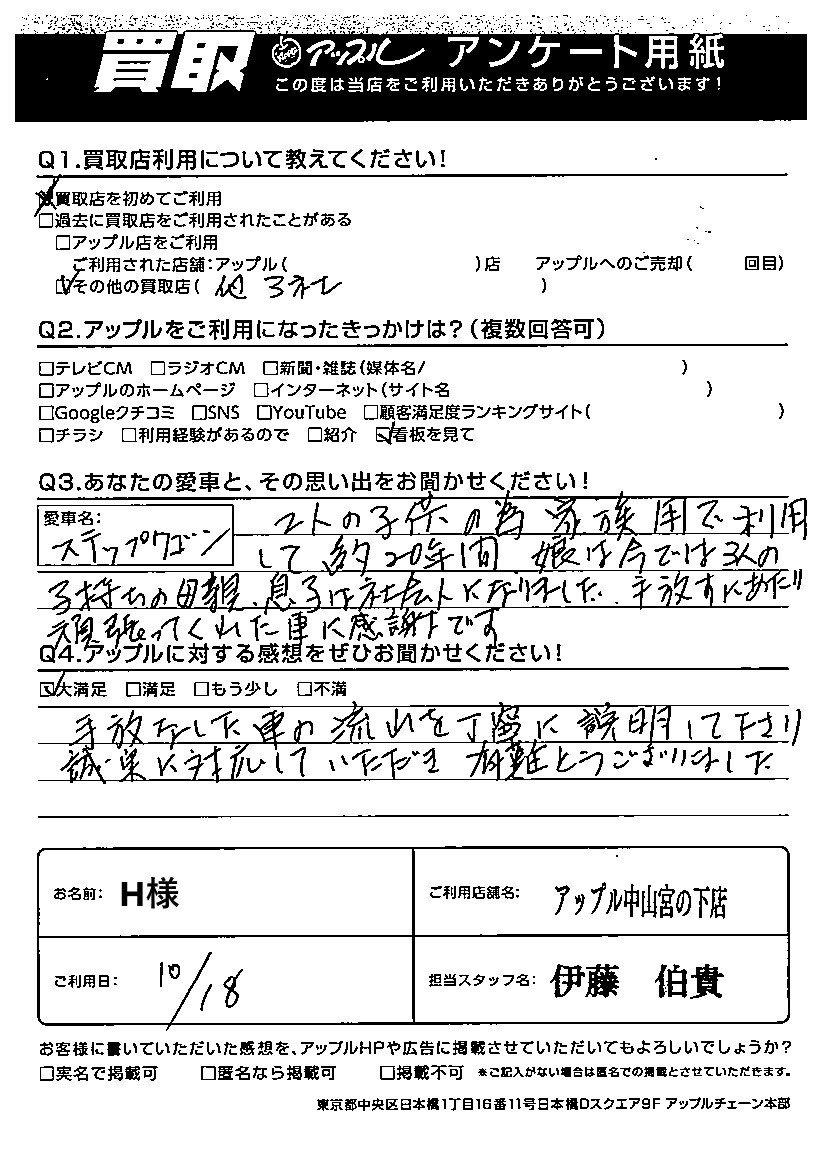 買取 アップル アンケート用紙
この度は当店をご利用いただきありがとうございます!
Q1.買取店利用について教えてください!
☑買取店を初めてご利用
□過去に買取店をご利用されたことがある
□アップル店をご利用
ご利用された店舗:アップル( )店 アップルへのご売却( 回目)
☑その他の買取店( 他 3社 )
Q2.アップルをご利用になったきっかけは?(複数回答可)
□テレビCM □ラジオCM □新聞・雑誌(媒体名/ )
□アップルのホームページ □インターネット(サイト名 )
□Googleクチコミ □SNS □YouTube □顧客満足度ランキングサイト( )
□チラシ □利用経験があるので □紹介 ☑看板を見て
Q3.あなたの愛車と、その思い出をお聞かせください!
愛車名:
ステップワゴン
2人の子供の為 家族用で利用
して 約20年間 娘は今では3人の
子持ちの母親 息子は社会人になりました 手放すにあたり
頑張ってくれた車に感謝です
Q4.アップルに対する感想をぜひお聞かせください!
☑大満足 □満足 □もう少し □不満
手放なした車の流れを丁寧に説明して下さり
誠実に対応していただき 有難とうございました
お名前: H様
ご利用店舗名: アップル中山宮の下店
ご利用日: 10/18
担当スタッフ名: 伊藤 伯貴
お客様に書いていただいた感想を、アップルHPや広告に掲載させていただいてもよろしいでしょうか?
□実名で掲載可 □匿名なら掲載可 □掲載不可 *ご記入がない場合は匿名での掲載とさせていただきます。
東京都中央区日本橋1丁目16番11号日本橋Dスクエア9F アップルチェーン本部